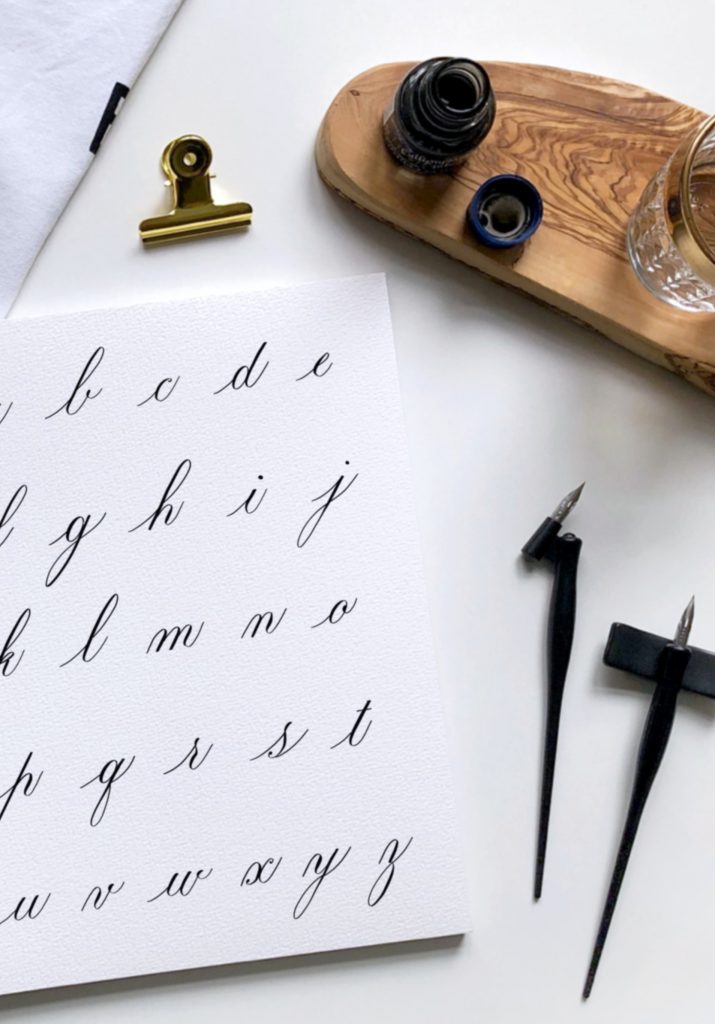 b c d e
g h i j
k l m n o
p q r s t
u v w x y z